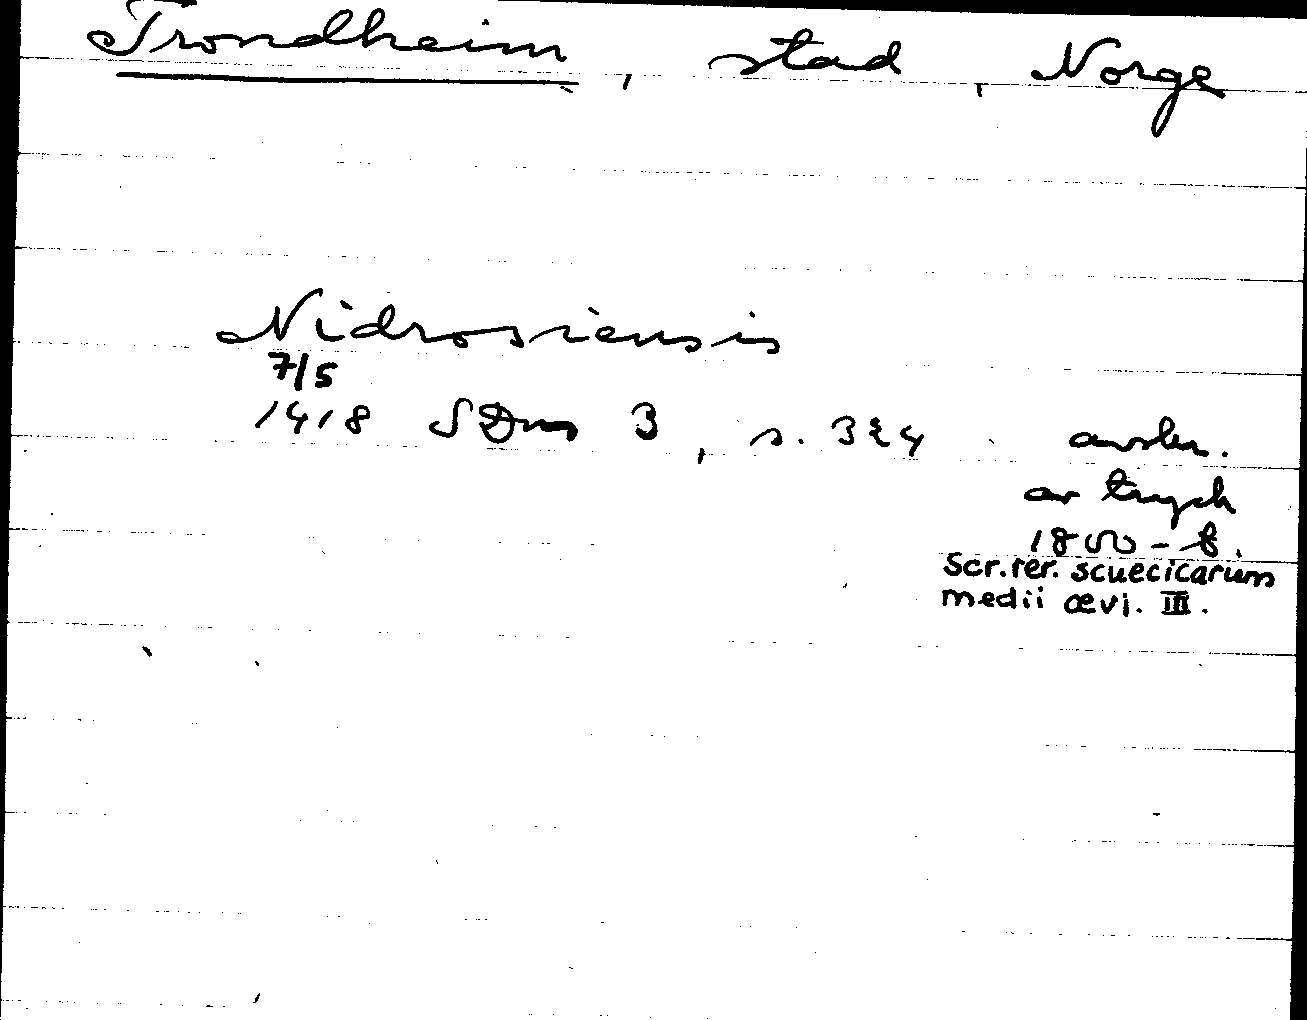 Trondheim, stad, Norge
Nidrosiensis
7/5
1418 SDns 3, s. 324 avskr.
av tryck
1800-t.
Scr. rer. scuecicarum
medii ævi. III.